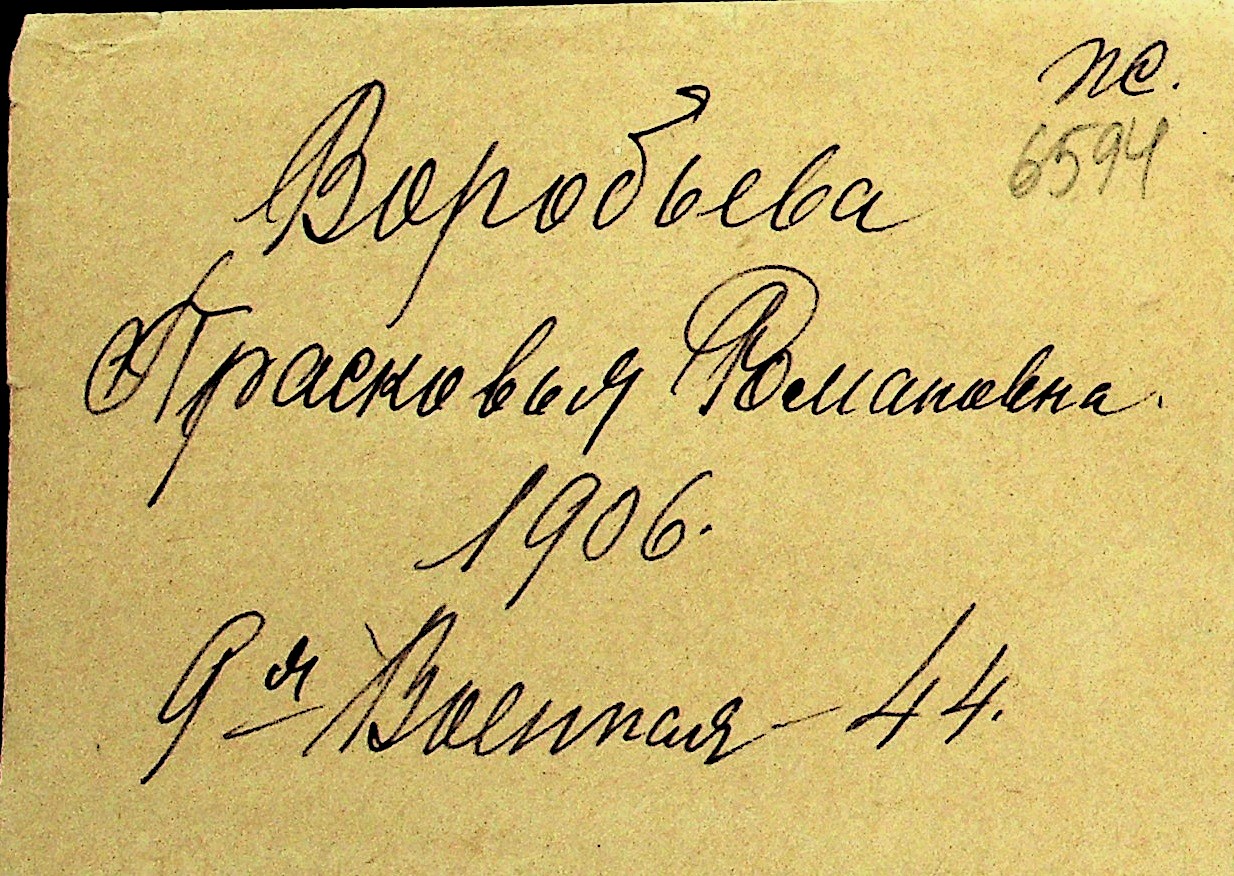 пс.
6594
Воробьева
Прасковья Романовна.
1906.
9я Военная - 44.